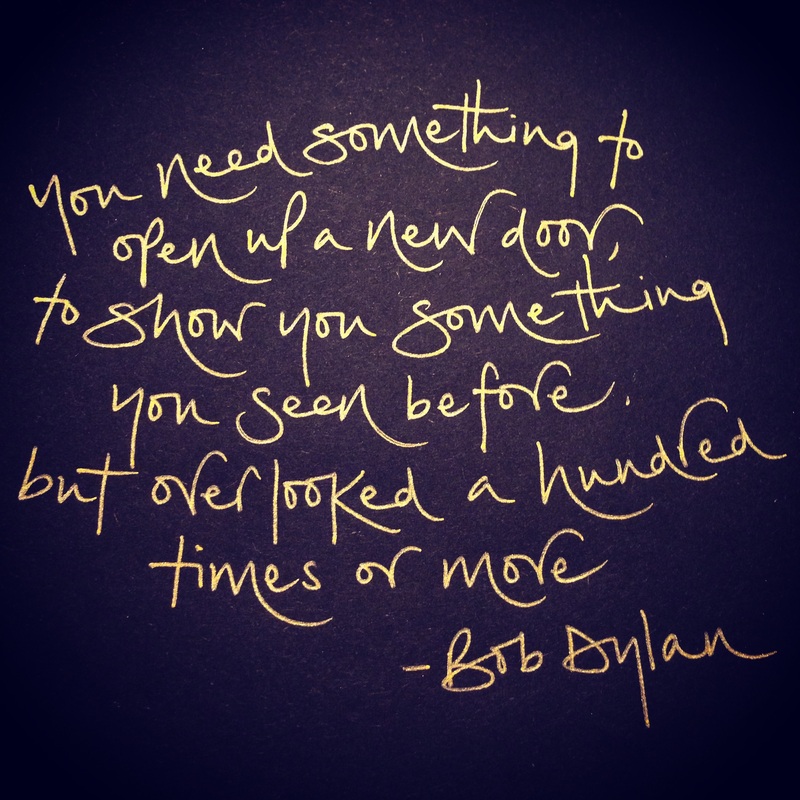 you need something to
open up a new door,
to show you something
you seen before.
but overlooked a hundred
times or more
-Bob Dylan